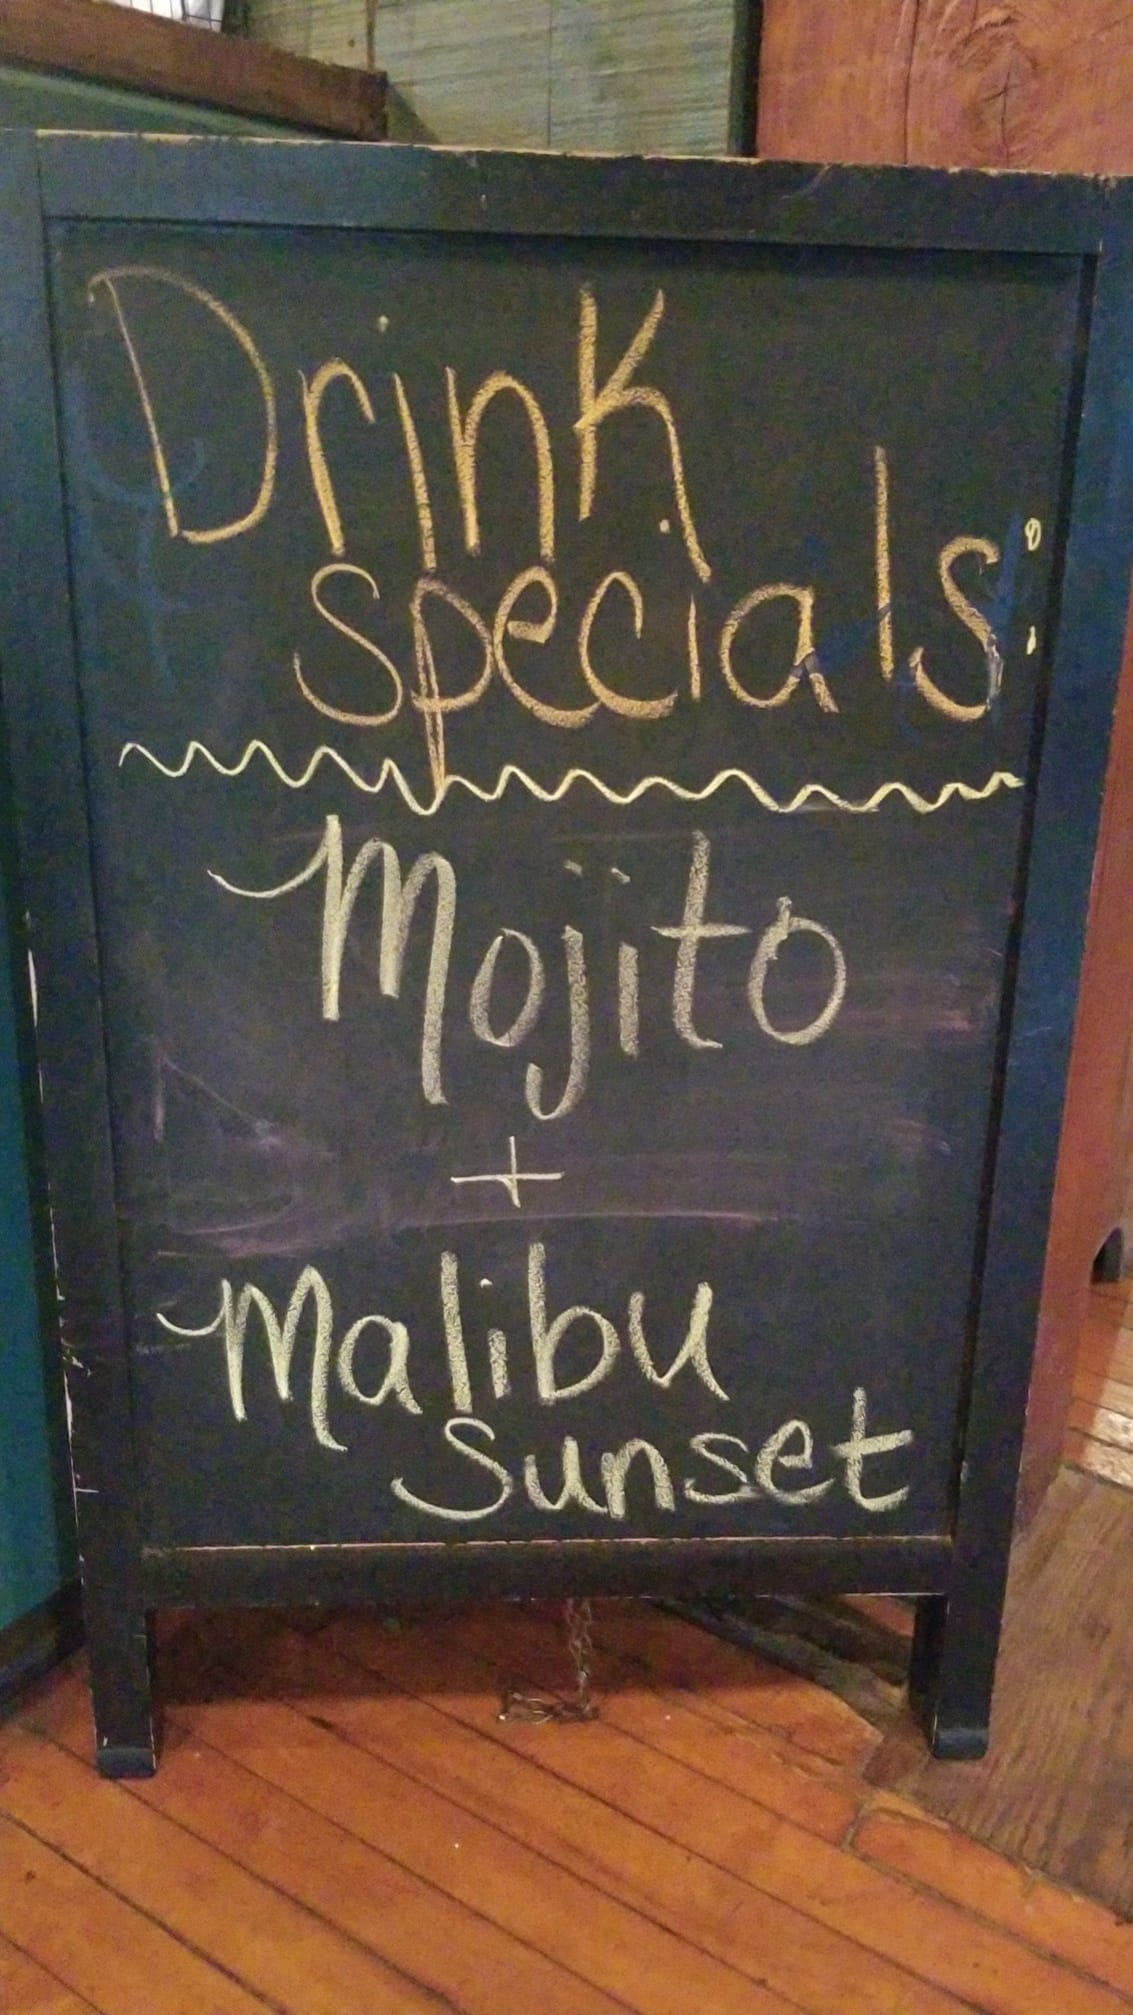 Drink
specials:
Mojito
+
Malibu
Sunset